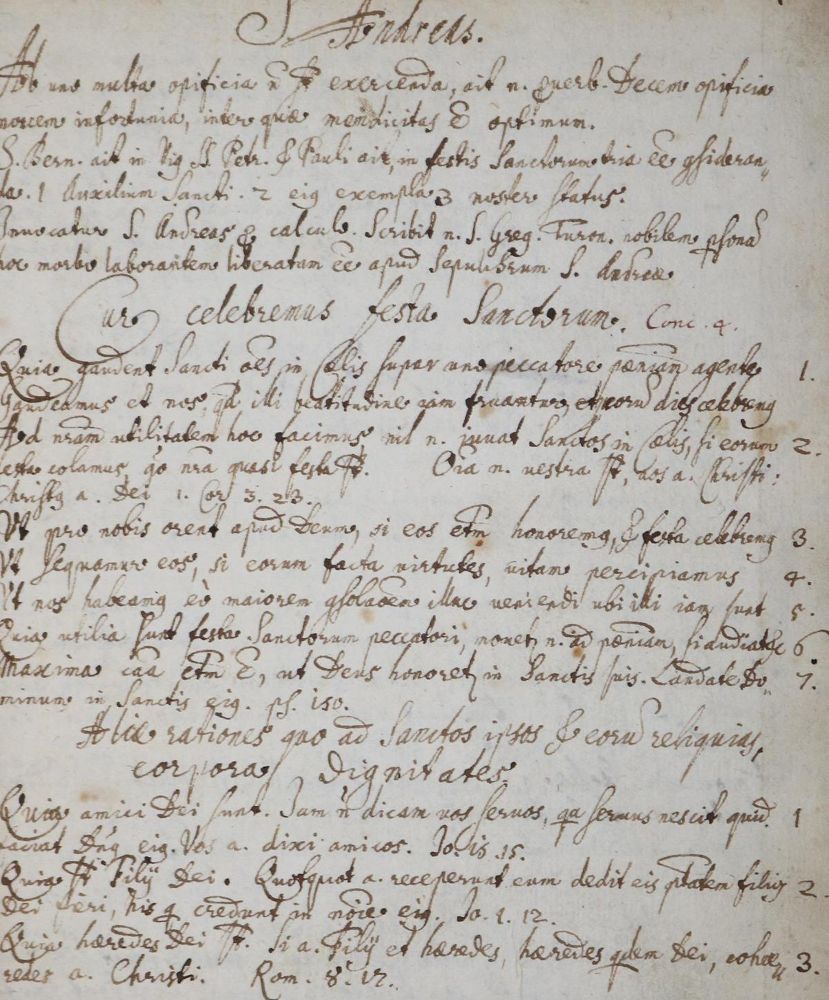 S Andreas.
Ab uno multa opificia ñ st exercenda, ait n. querb. Decem opificia
infortunia, inter quæ mendicitas ẽ optimum.
S. Bern. ait in Vig SS Petr. & Pauli ait, in festis Sanctorum tria eẽ gsideran„
da. 1 Auxilium Sancti. 2 eig exempla 3 noster status.
Invocatur S. Andreas calculo. Scribit n. S. Greg. Turon. nobilem psonã
hoc morbo laborantem liberatam eẽ apud Sepulchrum S. Andreæ
Cur celebremus festa Sanctorum. Conc. 4.
Quia gaudent Sancti oẽs in Cælis super uno peccatore pæniam agente 1.
Gaudeamus et nos, qd illi beatitudine iam fruantur, et eorũ dies celebreng
Ad nram utilitatem hoc facimus nil n. juvat Sanctos in Cælis, si eorum 2.
festa colamus, nra quasi festa st. Oia n. vestra st, vos a. Christi:
Christg a. Dei 1. Cor 3. 23.
Ut pro nobis orent apud Deum, si eos etm honoremg, & festa celebremg 3.
Ut sequamur eos, si eorum facta virtutes, vitam percipiamus 4.
Ut nos habeamg eò maiorem gsolaoem illuc veniendi ubi illi iam sunt 5.
Quia utilia sunt festa Sanctorum peccatori, movet n. ad pæniam, si audiat 6
Maxima caa etm ẽ, ut Deus honoret in Sanctis suis. Laudate Do„ 7.
minum in Sanctis eig. ps. 150.
Aliæ rationes quo ad Sanctos ipsos & eorũ reliquias,
corpora, Dignitates.
Quia amici Dei sunt. Jam ñ dicam vos servos, qa servus nescit quid 1
faciat Dñg eig. Vos a. dixi amicos. Jo. 15 .15.
Quia st Filij Dei. Quotquot a. receperunt eum dedit eis ptatem filig 2.
Dei fieri, his q credunt in nõie eig. Jo. 1. 12.
Quia hæredes Dei st. Si a. Filij et hæredes, hæredes qdem Dei, cohæ„ 3.
redes a. Christi. Rom. 8. 17.